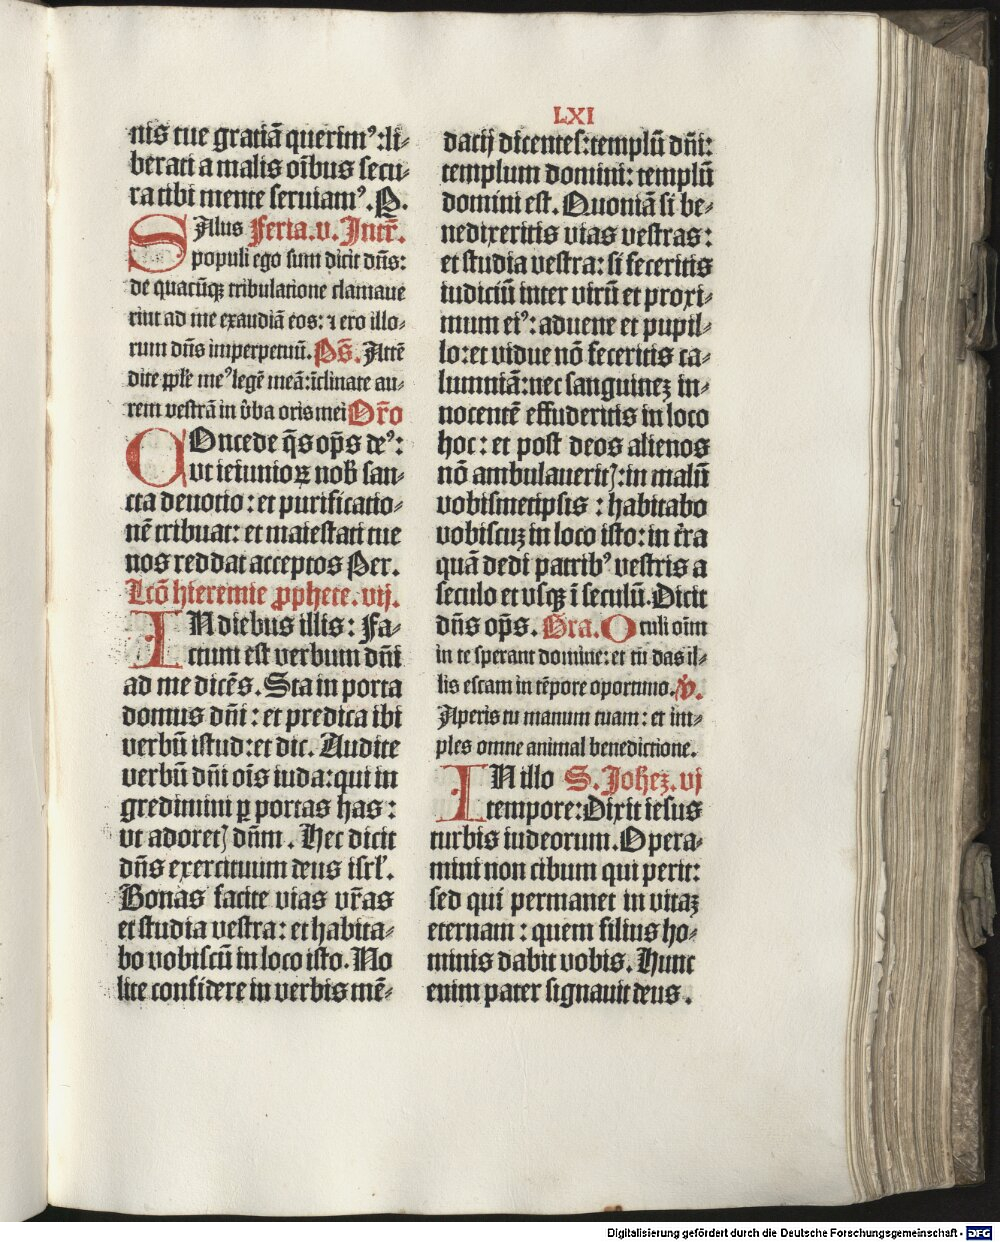 LXI
nis tue gratiā querimꝰ:li-
berati a malis oībus secu-
ra tibi mente seruiamꝰ. P.
SAlus Feria.v. Intr̄.
populi ego sum dicit dn̄s:
de quacūqꝫ tribulatione clamaue
rint ad me exaudiā eos: ⁊ ero illo-
rum dn̄s imperpetuū. Ps̄. Attē
dite pp̄le meꝰ legē meā: īclinate au-
rem vestrā in v̄ba oris mei Or̄o
COncede q̄s op̄s deꝰ:
vt ieiunioꝝ nob̄ san-
cta deuotio: et purificatio-
nē tribuat: et maiestati tue
nos reddat acceptos Per.
Lcō hieremie ꝓphete. vij.
IN diebus illis: Fa-
ctum est verbum dn̄i
ad me dicēs. Sta in porta
domus dn̄i: et predica ibi
verbū istud: et dic. Audite
verbū dn̄i oīs iuda: qui in
gredimini ꝑ portas has:
vt adoretꝭ dn̄m. Hec dicit
dn̄s exercituum deus isrl̄.
Bonas facite vias vr̄as
et studia vestra: et habita-
bo vobiscū in loco isto. No
lite confidere in verbis mē-
dacij dicentes: templū dn̄i:
templum domini: templū
domini est. Quoniā si be-
nedixeritis vias vestras:
et studia vestra: si feceritis
iudiciū inter virū et proxi-
mum eiꝰ: aduene et pupil-
lo: et vidue nō feceritis ca-
lumniā: nec sanguineꝫ in-
nocentē effuderitis in loco
hoc: et post deos alienos
nō ambulaueritꝭ: in malū
vobismetipsis: habitabo
vobiscuꝫ in loco isto: in t̄ra
quā dedi patribꝰ vestris a
seculo et vsqꝫ ī seculū. Dicit
dn̄s op̄s. Gra. Oculi oīm
in te sperant domine: et tu das il-
lis escam in tēpore oportuno. V̄.
Aperis tu manum tuam: et im-
ples omne animal benedictione.
IN illo S. Johēꝫ. vj
tempore: Dixit iesus
turbis iudeorum. Opera-
mini non cibum qui perit:
sed qui permanet in vitaꝫ
eternam: quem filius ho-
minis dabit vobis. Hunc
enim pater signauit deus.
Digitalisierung gefördert durch die Deutsche Forschungsgemeinschaft - DFG